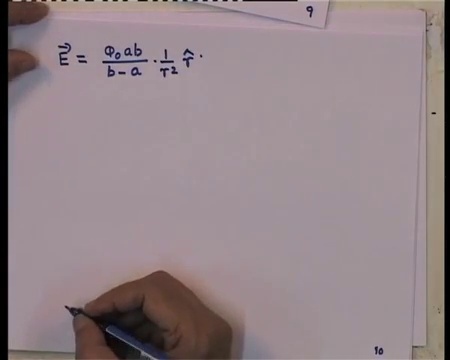 9
E⃗ = φ₀ab / (b − a) · 1/r² r̂ ·
10